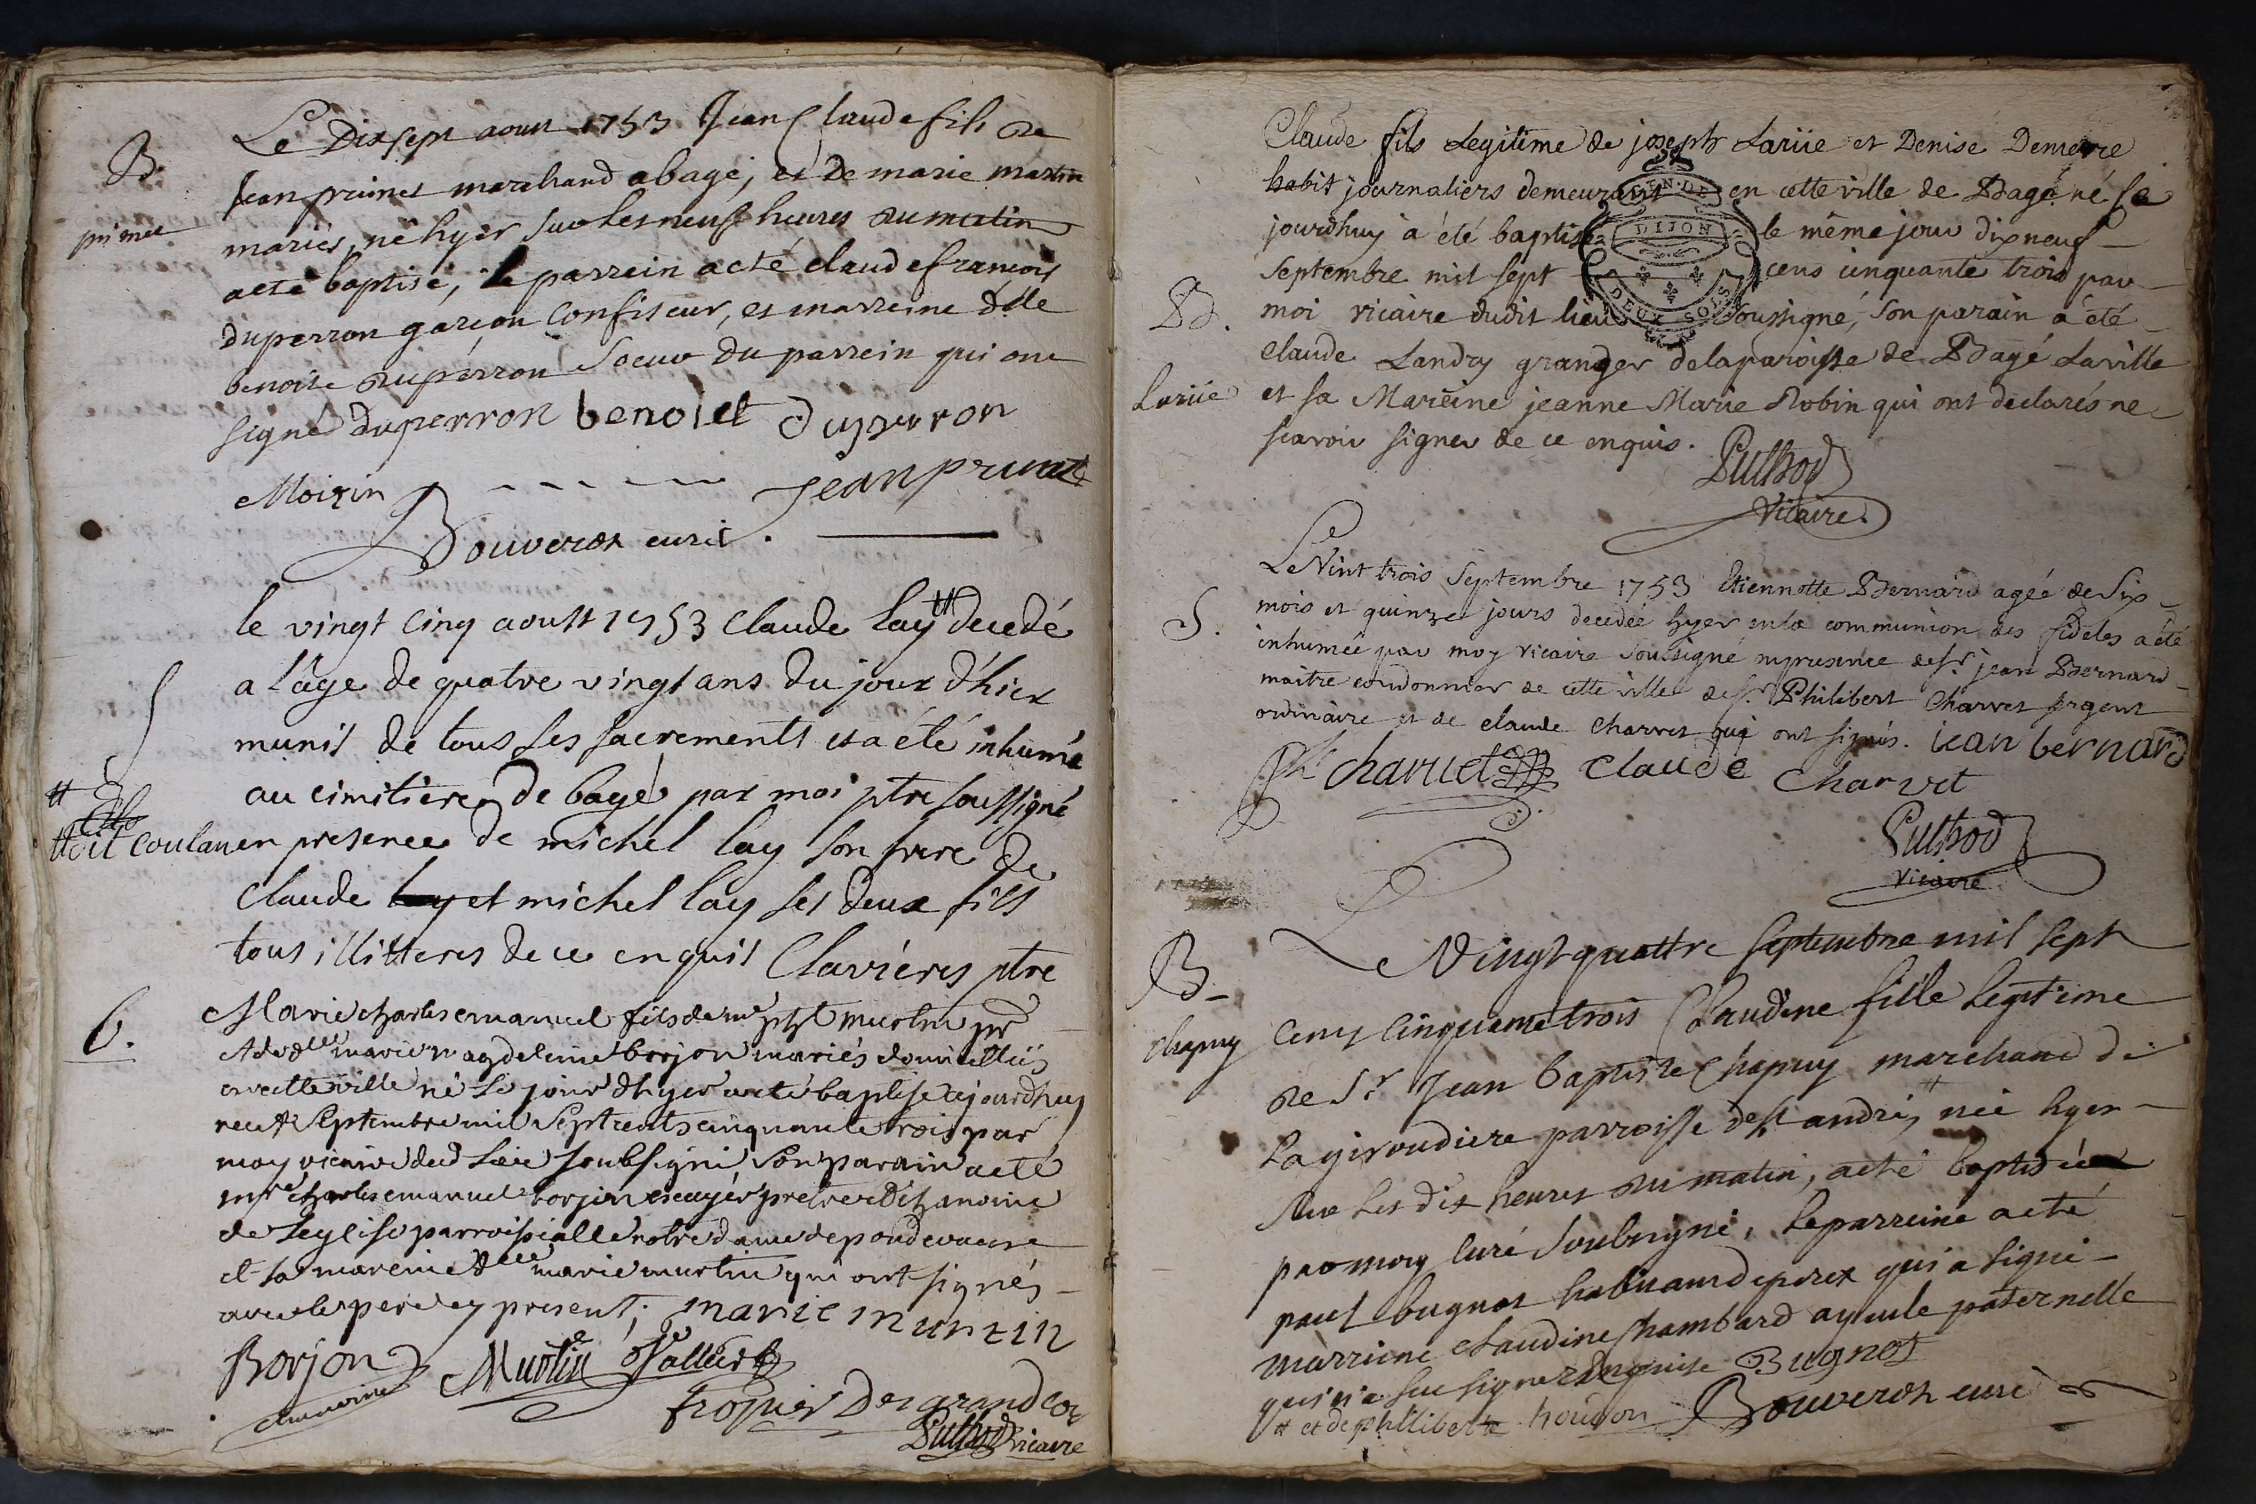 Le Dix sept aoust 1753 Jean Claude fils de
B.
Jean primet marchand a bagé, et De marie martin
primet
mariés, né hyer sur les neuf heures du matin
a eté baptisé, le parrein a eté claude francois
duperron garçon Confiseur, et marreine dlle
benoite duperron Soeur du parrein qui ont
signé duperron benoiet duperron
Moizin Jean primet
Bouveret curé.
le vingt cinq aoust 1753 Claude lay # decedé
a l'âge de quatre vingt ans du jour d'hier
S
munis de tous ses sacrements et a été inhumé
au cimitiere de bagé par moi ptre soussigné
# dit coulau en presence de michel lay son frere de
Claude et michel lay ses deux fils
tous illitteres de ce enquis Clavières ptre
6.
Marie charles emanuel fils de me murtin
et de dlle marie magdeleine borjon mariés domicilliés
en cette ville né le jour d'hyer a eté baptisé cejourdhuy
neuf Septembre mil Sept cents cinquante trois par
moy vicaire dud Lieu soubsigné, son parain a eté
mre charles emanuel borjon escuyer pretre et chanoine
de Leglise parroissialle notre dame de pondevaux
et sa mareine dlle marie murtin qui ont signés
avec le pere cy present; marie murtin
Borjon Murtin
chanoine
Puthod vicaire
Claude fils Legitime de joseph Lariie et Denise Demeure
habit journaliers demeurant en cette ville de Bagé né ce
jourdhuy à été baptisé le même jour dix neuf
Septembre mil sept cens cinquante trois par
GEN. DE DIJON
DEUX SOLS
Bd.
moi vicaire dudit lieu Soussigné, Son parain a été
claude Landry granger de la paroisse de Bagé Laville
Lariie
et sa Mareine jeanne Marie Robin qui ont declarés ne
scavoir signer de ce enquis.
Puthod
Vicaire
Le Vint trois Septembre 1753 Etiennette Bernard agée de Six
S.
mois et quinze jours decedée hyer en la communion des fideles a été
inhumée par moy vicaire Soussigné en presence de Sr. jean Bernard
maitre cordonnier de cette ville de Sr Philibert Charvet sergent
ordinaire et de claude Charvet qui ont signés. iean bernard
Ph charvet Claude Charvet
Puthod
vicaire
Le Vingt quattre Septembre mil sept
B
chapuy
cent cinquante trois Claudine fille Legitime
de Sr Jean baptiste Chapuy marchand de
La giroudiere parroisse de st andré, # née hyer
sur les dix heures du matin, a eté baptisée
par moy curé Soubsigné, le parreine a eté
paul bugnot qui a signé
marreine Claudine Chambard ayeule paternelle
qui n'a sçu signer enquise Bugnot
# et de philiberte houdon Bouveret curé